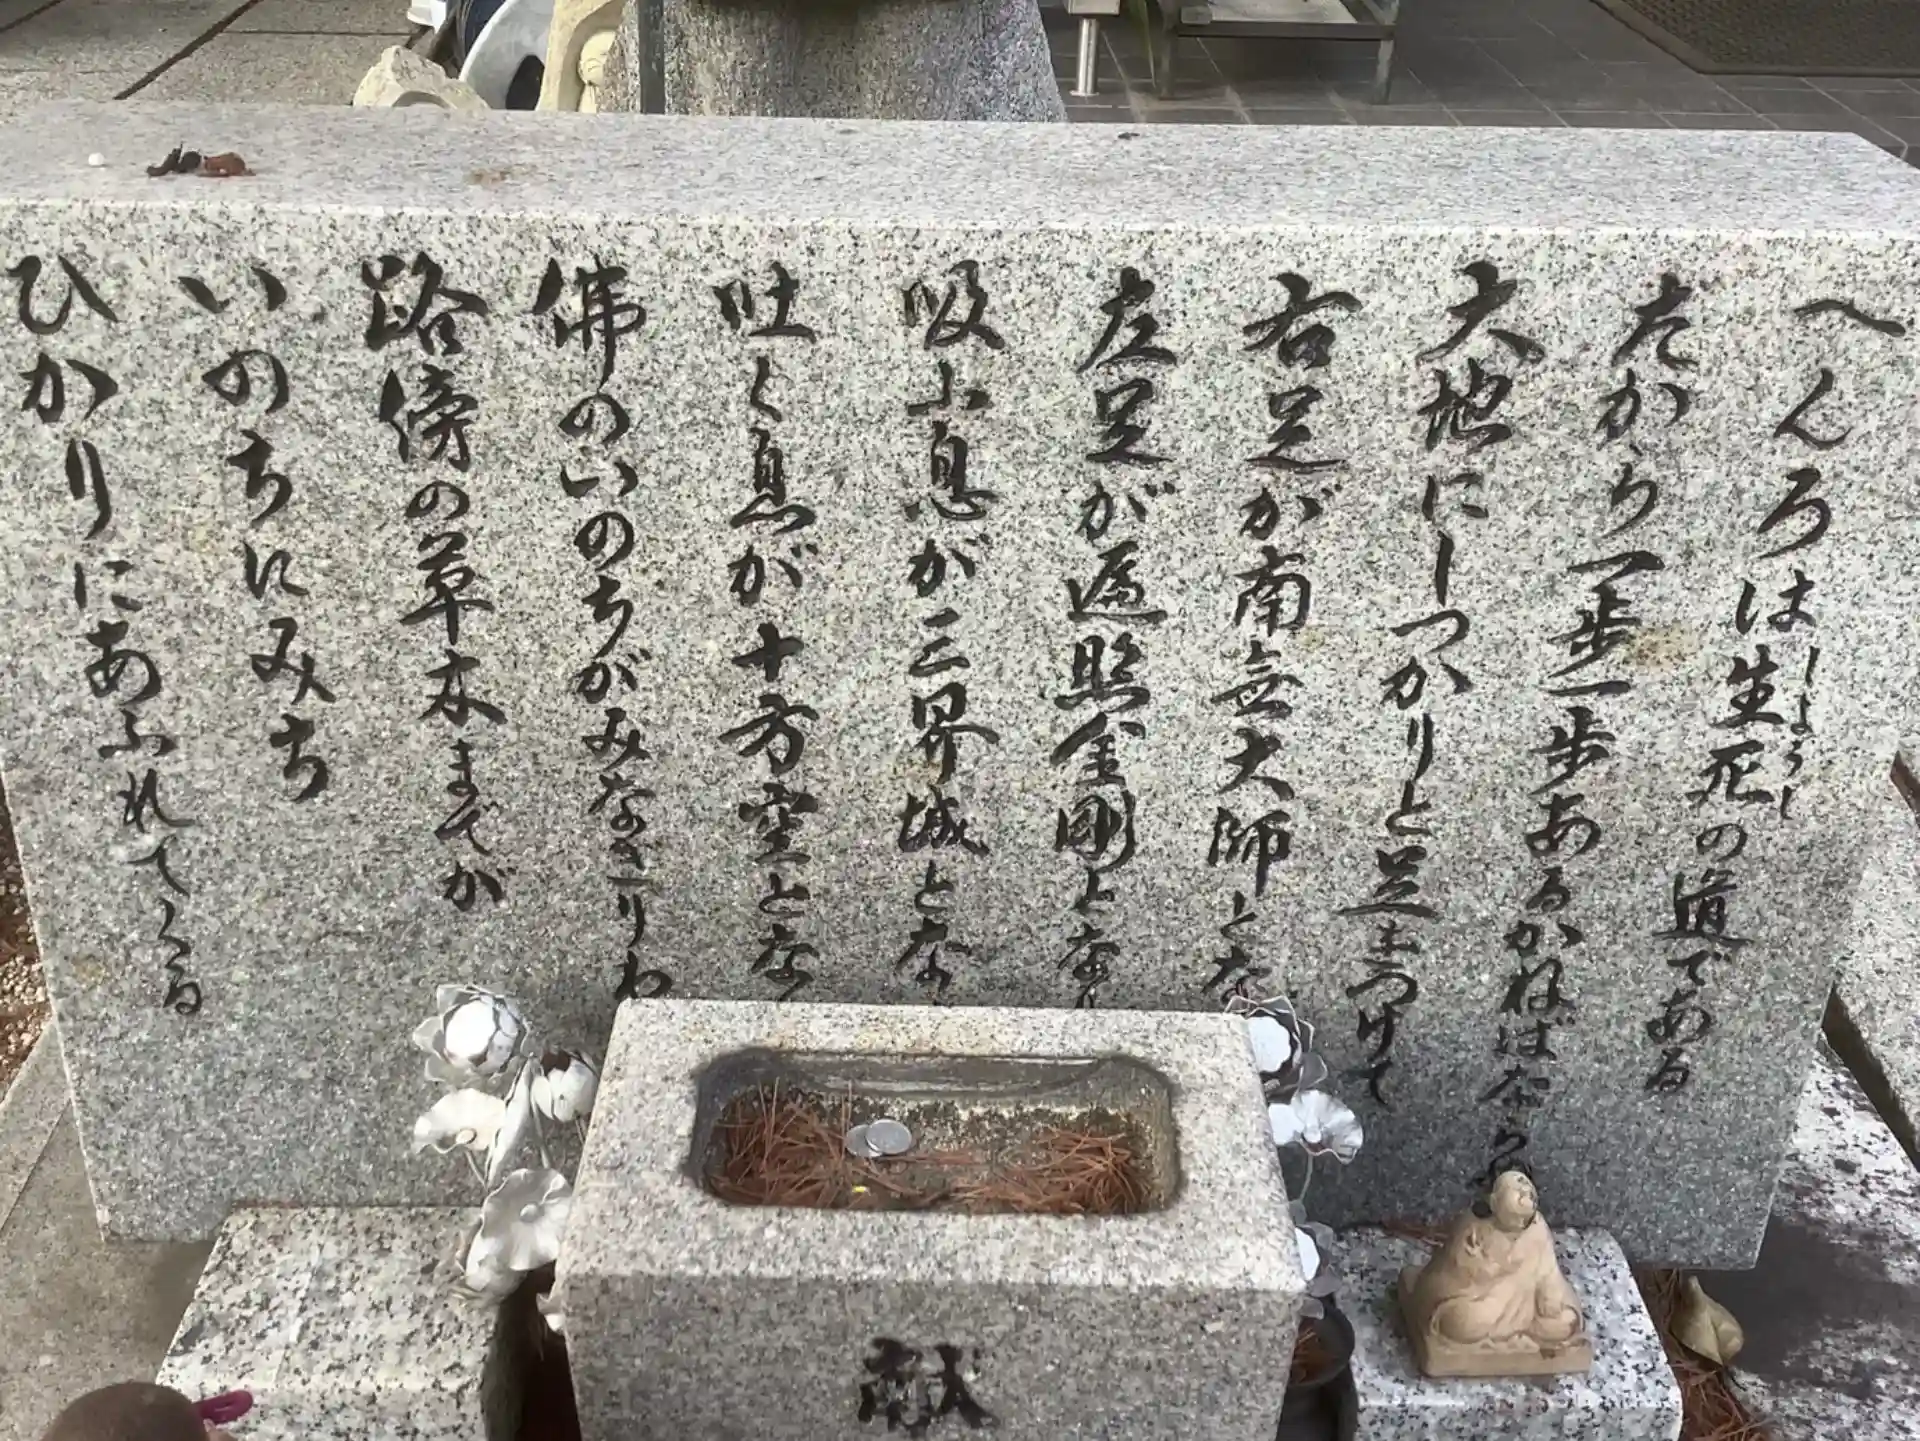 へんろは生死の道である
しょうし
だから一歩一歩あるかねばなら
大地にしっかりと足をつけて
右足が南無大師とな
左足が遍照金剛となり
吸ふ息が三界城とな
吐く息が十方空とな
佛のいのちがみなぎりわ
路傍の草木までが
いのちにみち
ひかりにあふれてくる
献